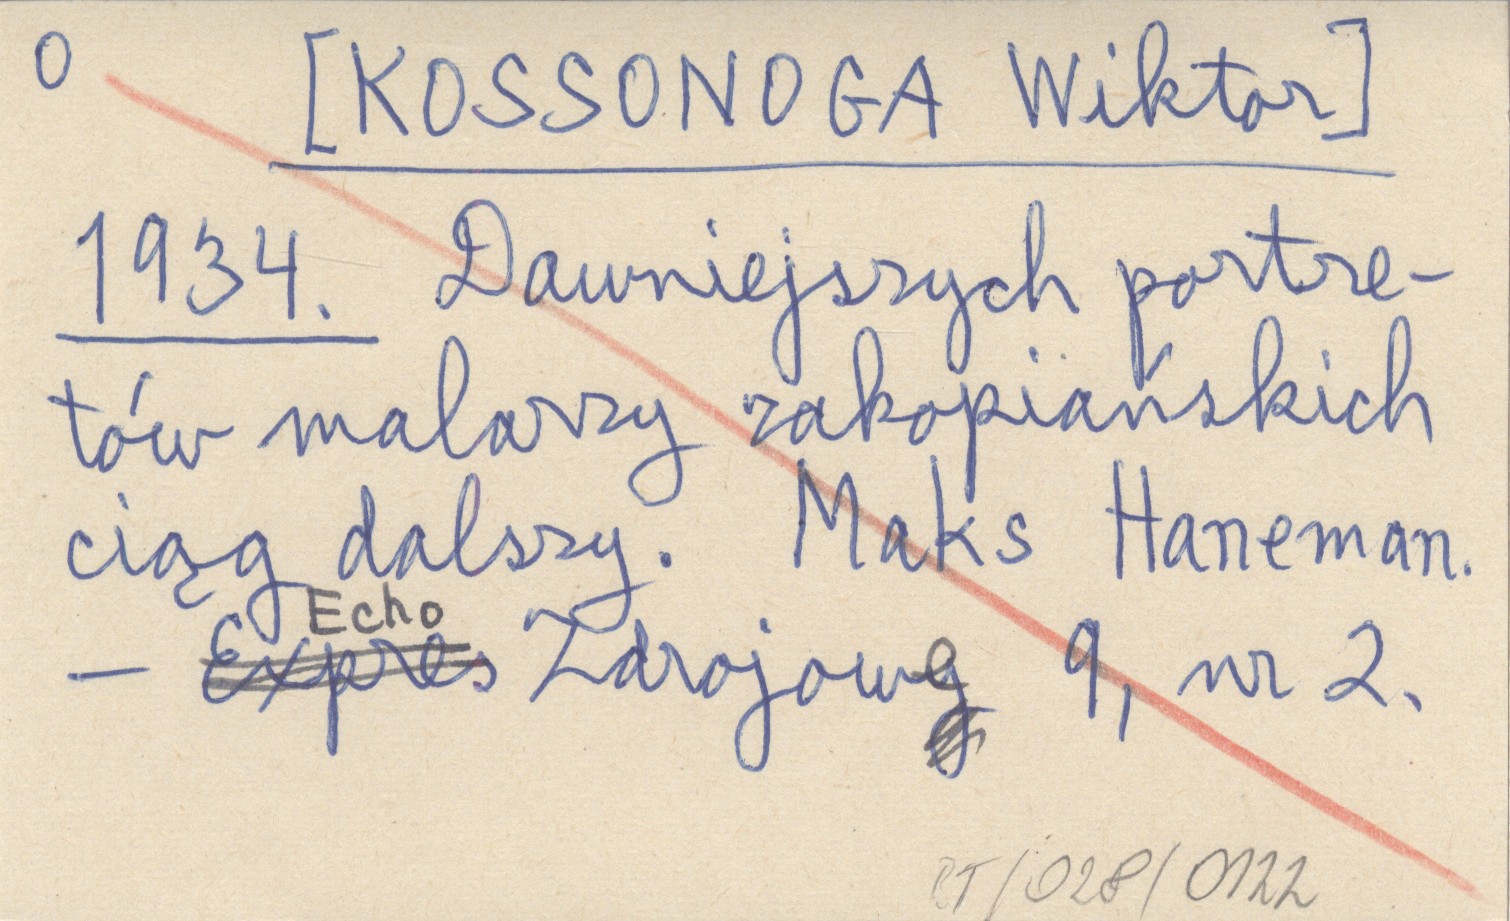 O [KOSSONOGA Wiktor]
1934. Dawniejszych portre-
tów malarzy zakopiańskich
ciąg dalszy. Maks Haneman.
Echo
— Expres Zdrojowe 9, nr 2.
RT/028/0122